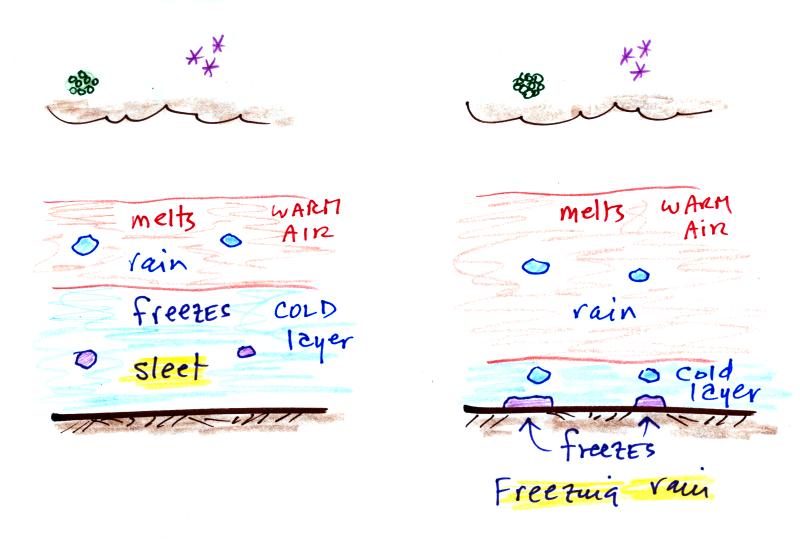 melts WARM
AIR
rain
freezes COLD
layer
sleet
melts WARM
AIR
rain
cold
layer
freezes
Freezing rain